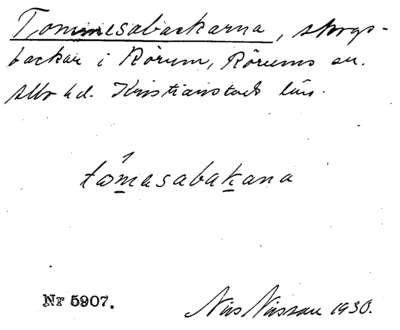 Tommesabackarna, skogs-
backar i Rörum, Rörums sn.
Albo hd. Kristianstads län.
tåmasabakana
Nr 5907.
Nils Nilsson 1930.